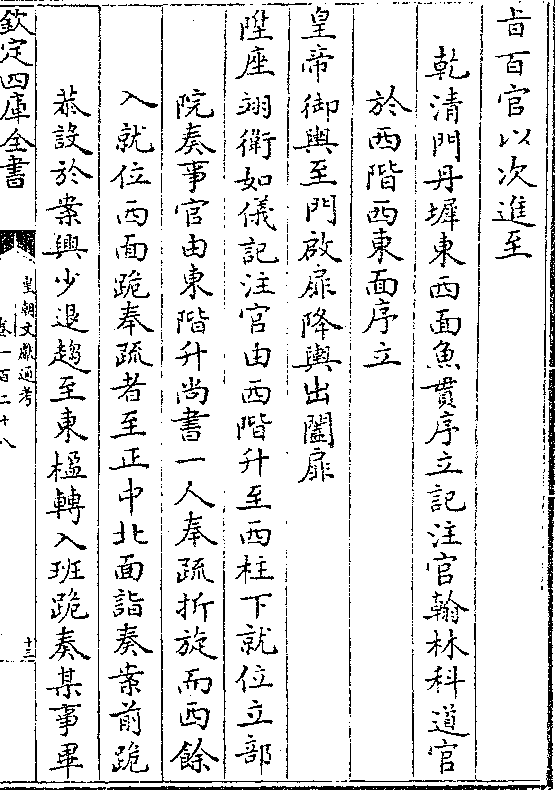 旨百官以次進至
乾清門丹墀東西面魚貫序立記注官翰林科道官
於西階西東面序立
皇帝御輿至門啟扉降輿出闥扉
陞座翊衛如儀記注官由西階升至西柱下就位立部
院奏事官由東階升尚書一人奉疏折旋而西餘
入就位西面跪奉疏者至正中北面詣奏案前跪
恭設於案興少退趨至東楹轉入班跪奏某事畢
欽定四庫全書
皇朝文獻通考
卷一百二十八
十三